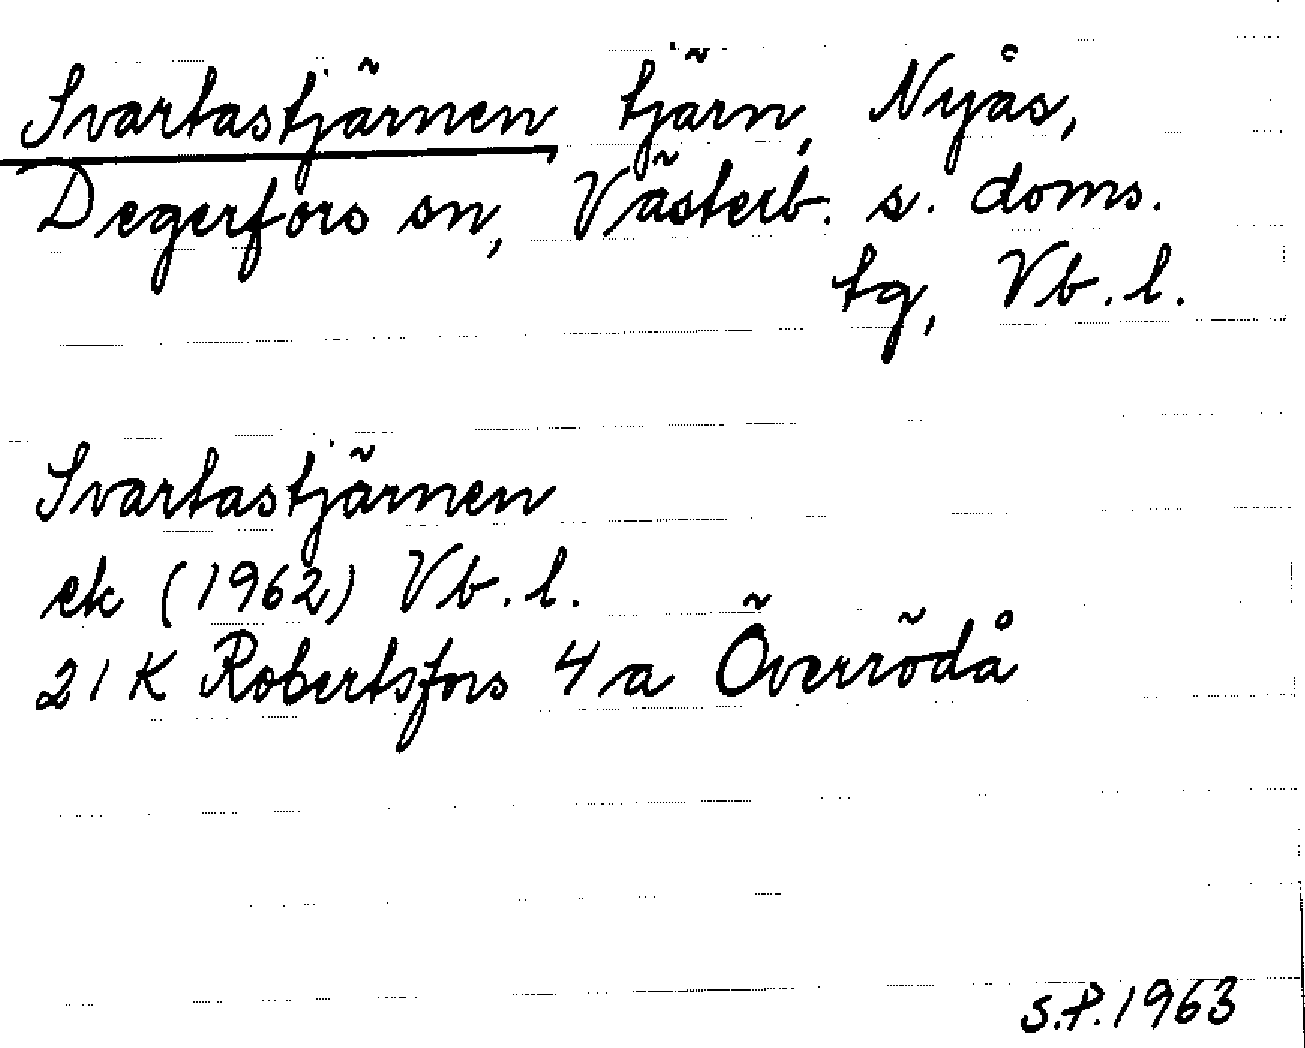 Svartastjärnen, tjärn, Nyås,
Degerfors sn, Västerb. s. doms.
tg, Vb. l.
Svartastjärnen
ek (1962) Vb. l.
21 K Robertsfors 4 a Överrödå
S.P. 1963